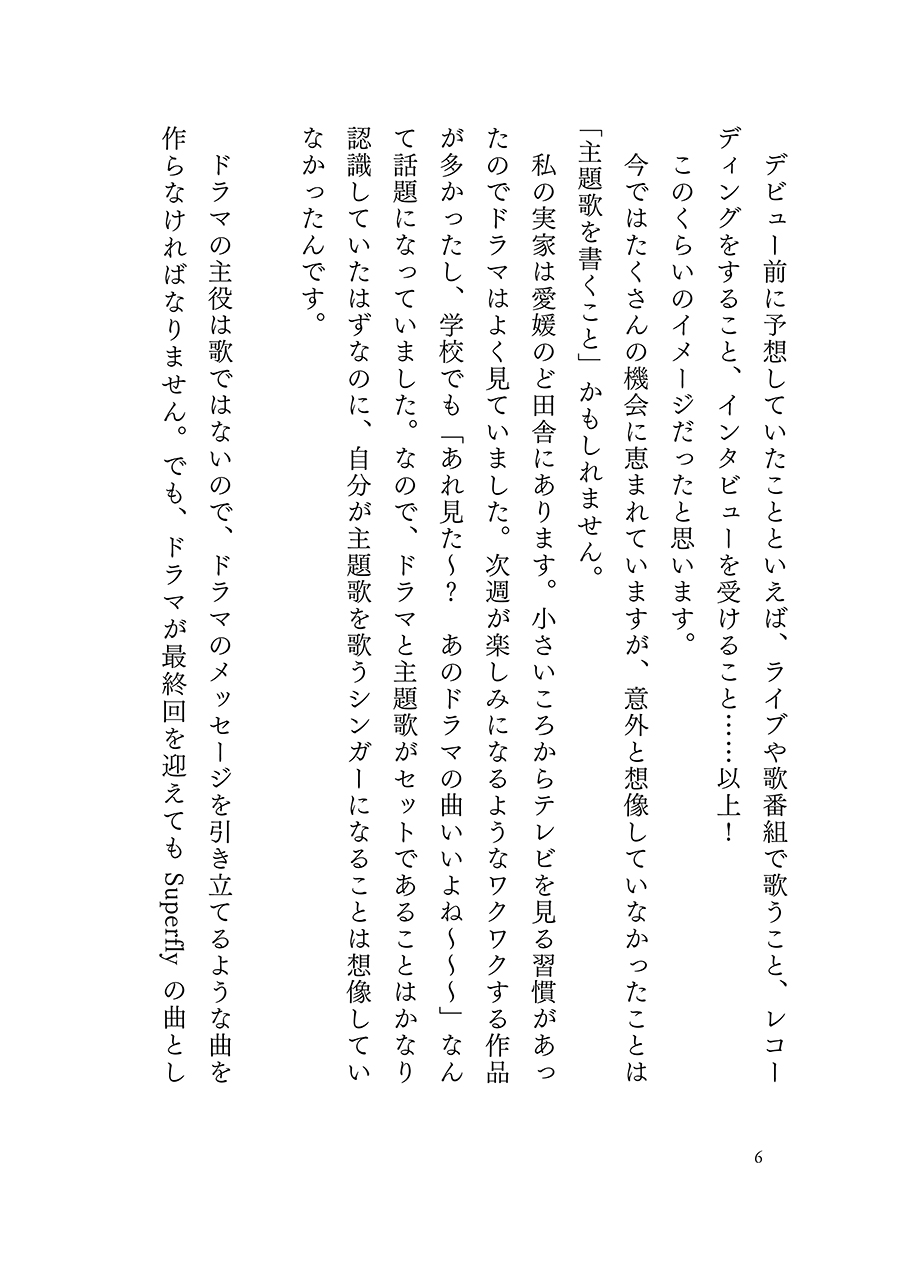 デビュー前に予想していたことといえば、ライブや歌番組で歌うこと、レコー
ディングをすること、インタビューを受けること……以上！
　このくらいのイメージだったと思います。
　今ではたくさんの機会に恵まれていますが、意外と想像していなかったことは
「主題歌を書くこと」かもしれません。
　私の実家は愛媛のど田舎にあります。小さいころからテレビを見る習慣があっ
たのでドラマはよく見ていました。次週が楽しみになるようなワクワクする作品
が多かったし、学校でも「あれ見た～？　あのドラマの曲いいよね～～～」なん
て話題になっていました。なので、ドラマと主題歌がセットであることはかなり
認識していたはずなのに、自分が主題歌を歌うシンガーになることは想像してい
なかったんです。
　ドラマの主役は歌ではないので、ドラマのメッセージを引き立てるような曲を
作らなければなりません。でも、ドラマが最終回を迎えても Superfly の曲とし
6